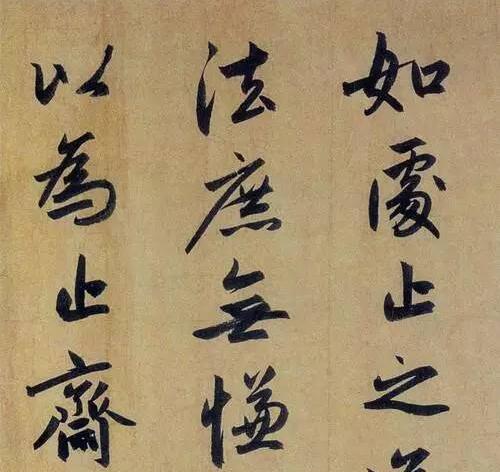 如處止之
法庶無慊
以為止齋